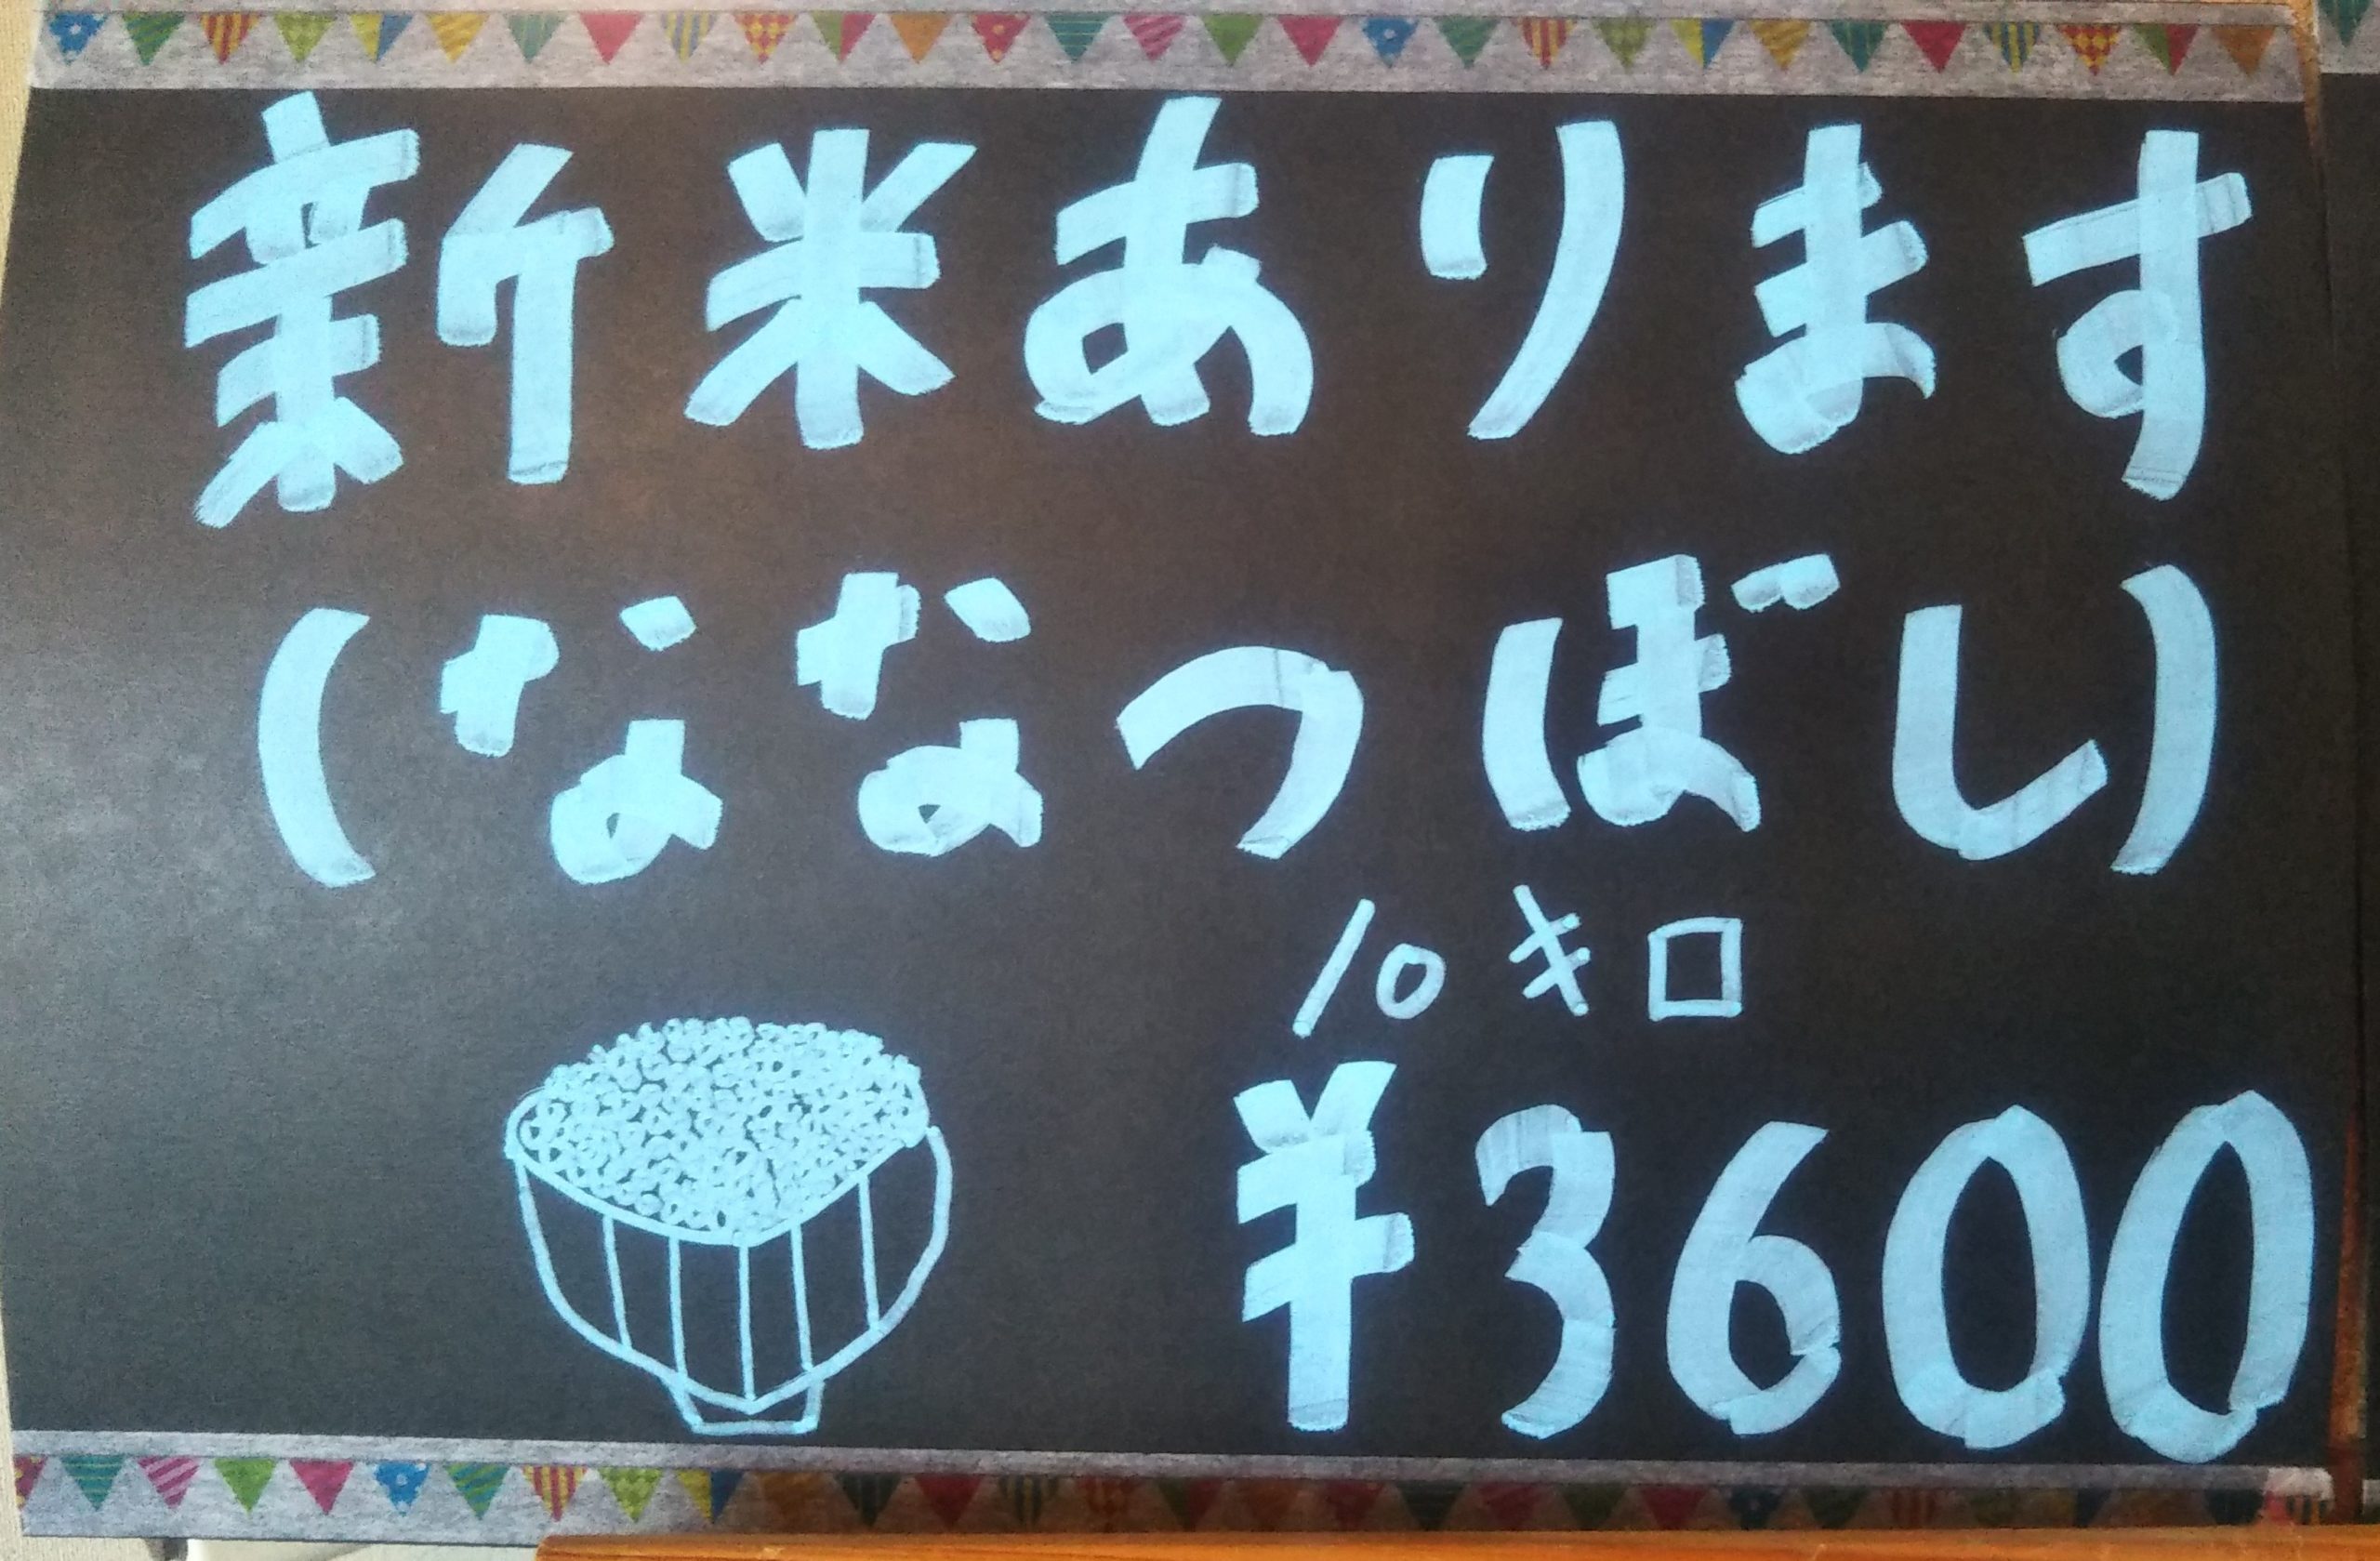 新米あります
(ななつぼし)
10キロ
¥3600